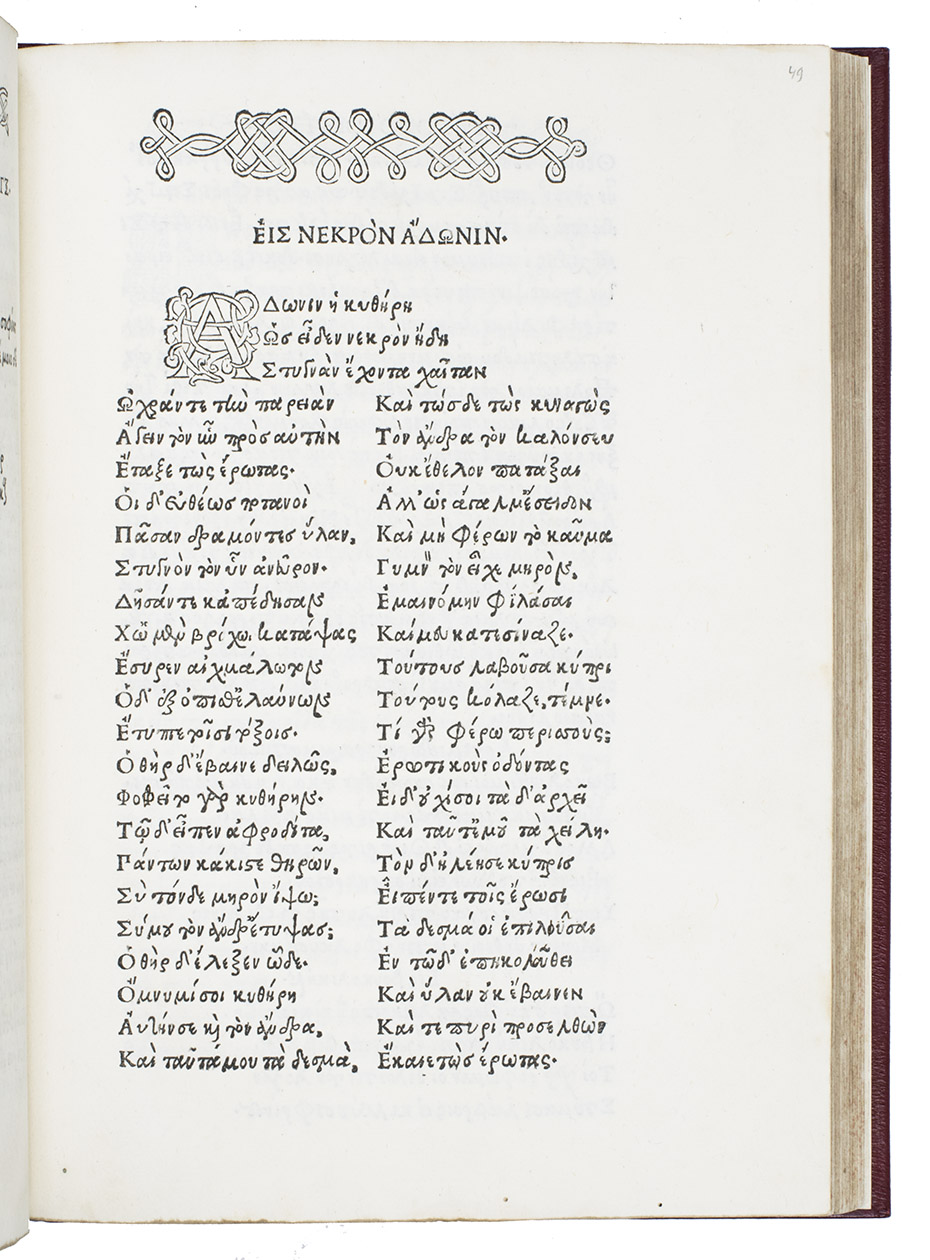 49
ἘΙΣ ΝΕΚΡῸΝ ἌΔΩΝΙΝ.
ΑΔωνιν ἡ κυθήρη
Ὡσ εἶδεν νεκρὸν ἤδη
Στυγνὰν ἔχοντα χαῖταν
Ὠχράν τε τὴν παρειὰν
Ἄγειν τὸν ὗν πρὸσ αὐτὴν
Ἔταξε τὼς ἔρωτας.
Οἱ δ' ἐυθέωσ ποτανοὶ
Πᾶσαν δραμόντες ὕλαν,
Στυγνὸν τὸν ὗν ἀνεῦρον.
Δῆσάν τε κἀπέδησαν
Χὣ μὲν βρόχῳ κατάψας
Ἔσυρεν αἰχμάλωτον
Ὁ δ' ἐξόπισθ' ἐλαύνων
Ἔτυπτε τοῖσι τόξοις.
Ὁ θὴρ δ' ἔβαινε δειλῶς,
Φοβεῖτο γὰρ κυθήρην.
Τῷ δ' εἶπεν ἀφροδίτα,
Πάντων κάκιστε θηρῶν,
Σὺ τόνδε μηρὸν ἴψω;
Σύ μου τὸν ἄνδρ' ἔτυψας;
Ὁ θὴρ δ' ἔλεξεν ὧδε.
Ὄμνυμί σοι κυθήρη
Αὐτήν σε καὶ τὸν ἄνδρα,
Καὶ ταῦτά μου τὰ δεσμὰ,
Καὶ τώσδε τὼς κυναγὼς
Τὸν ἄνδρα τὸν καλόν σευ
Οὐκ ἔθελον πατάξαι
Ἀλλ' ὡς ἄγαλμ' ἐσεῖδον
Καὶ μὴ φέρων τὸ καῦμα
Γυμνὸν τὸν εἶχε μηρὸν,
Ἐμαινόμην φιλάσαι
Καί μευ κατεσίναζε.
Τούτους λαβοῦσα κύπρι
Τούτους κόλαζε, τέμνε.
Τί γὰρ φέρω περισσοὺς;
Ἐρωτικοὺς ὀδόντας
Εἰ δ' οὐχί σοι τὰ δ' ἀρκεῖ
Καὶ ταῦτ' ἐμοῦ τὰ χείλη.
Τὸν δ' ἠλέησε κύπρισ
Εἶπέν τε τοῖς ἔρωσι
Τὰ δεσμά οἱ ἐπιλῦσαι
Ἐν τῶδ' ἐπηκολούθει
Καὶ ὕλαν οὐκ ἔβαινεν
Καί τε πυρὶ προσελθὼν
Ἔκαιε τὼσ ἔρωτας.